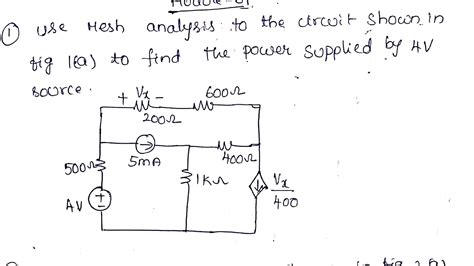 ① Use Mesh analysis to the circuit shown in
fig 1(a) to find the power supplied by 4V
source.
+ Vx − 600Ω
200Ω
5mA 400Ω
500Ω 1KΩ Vx/400
4V + −